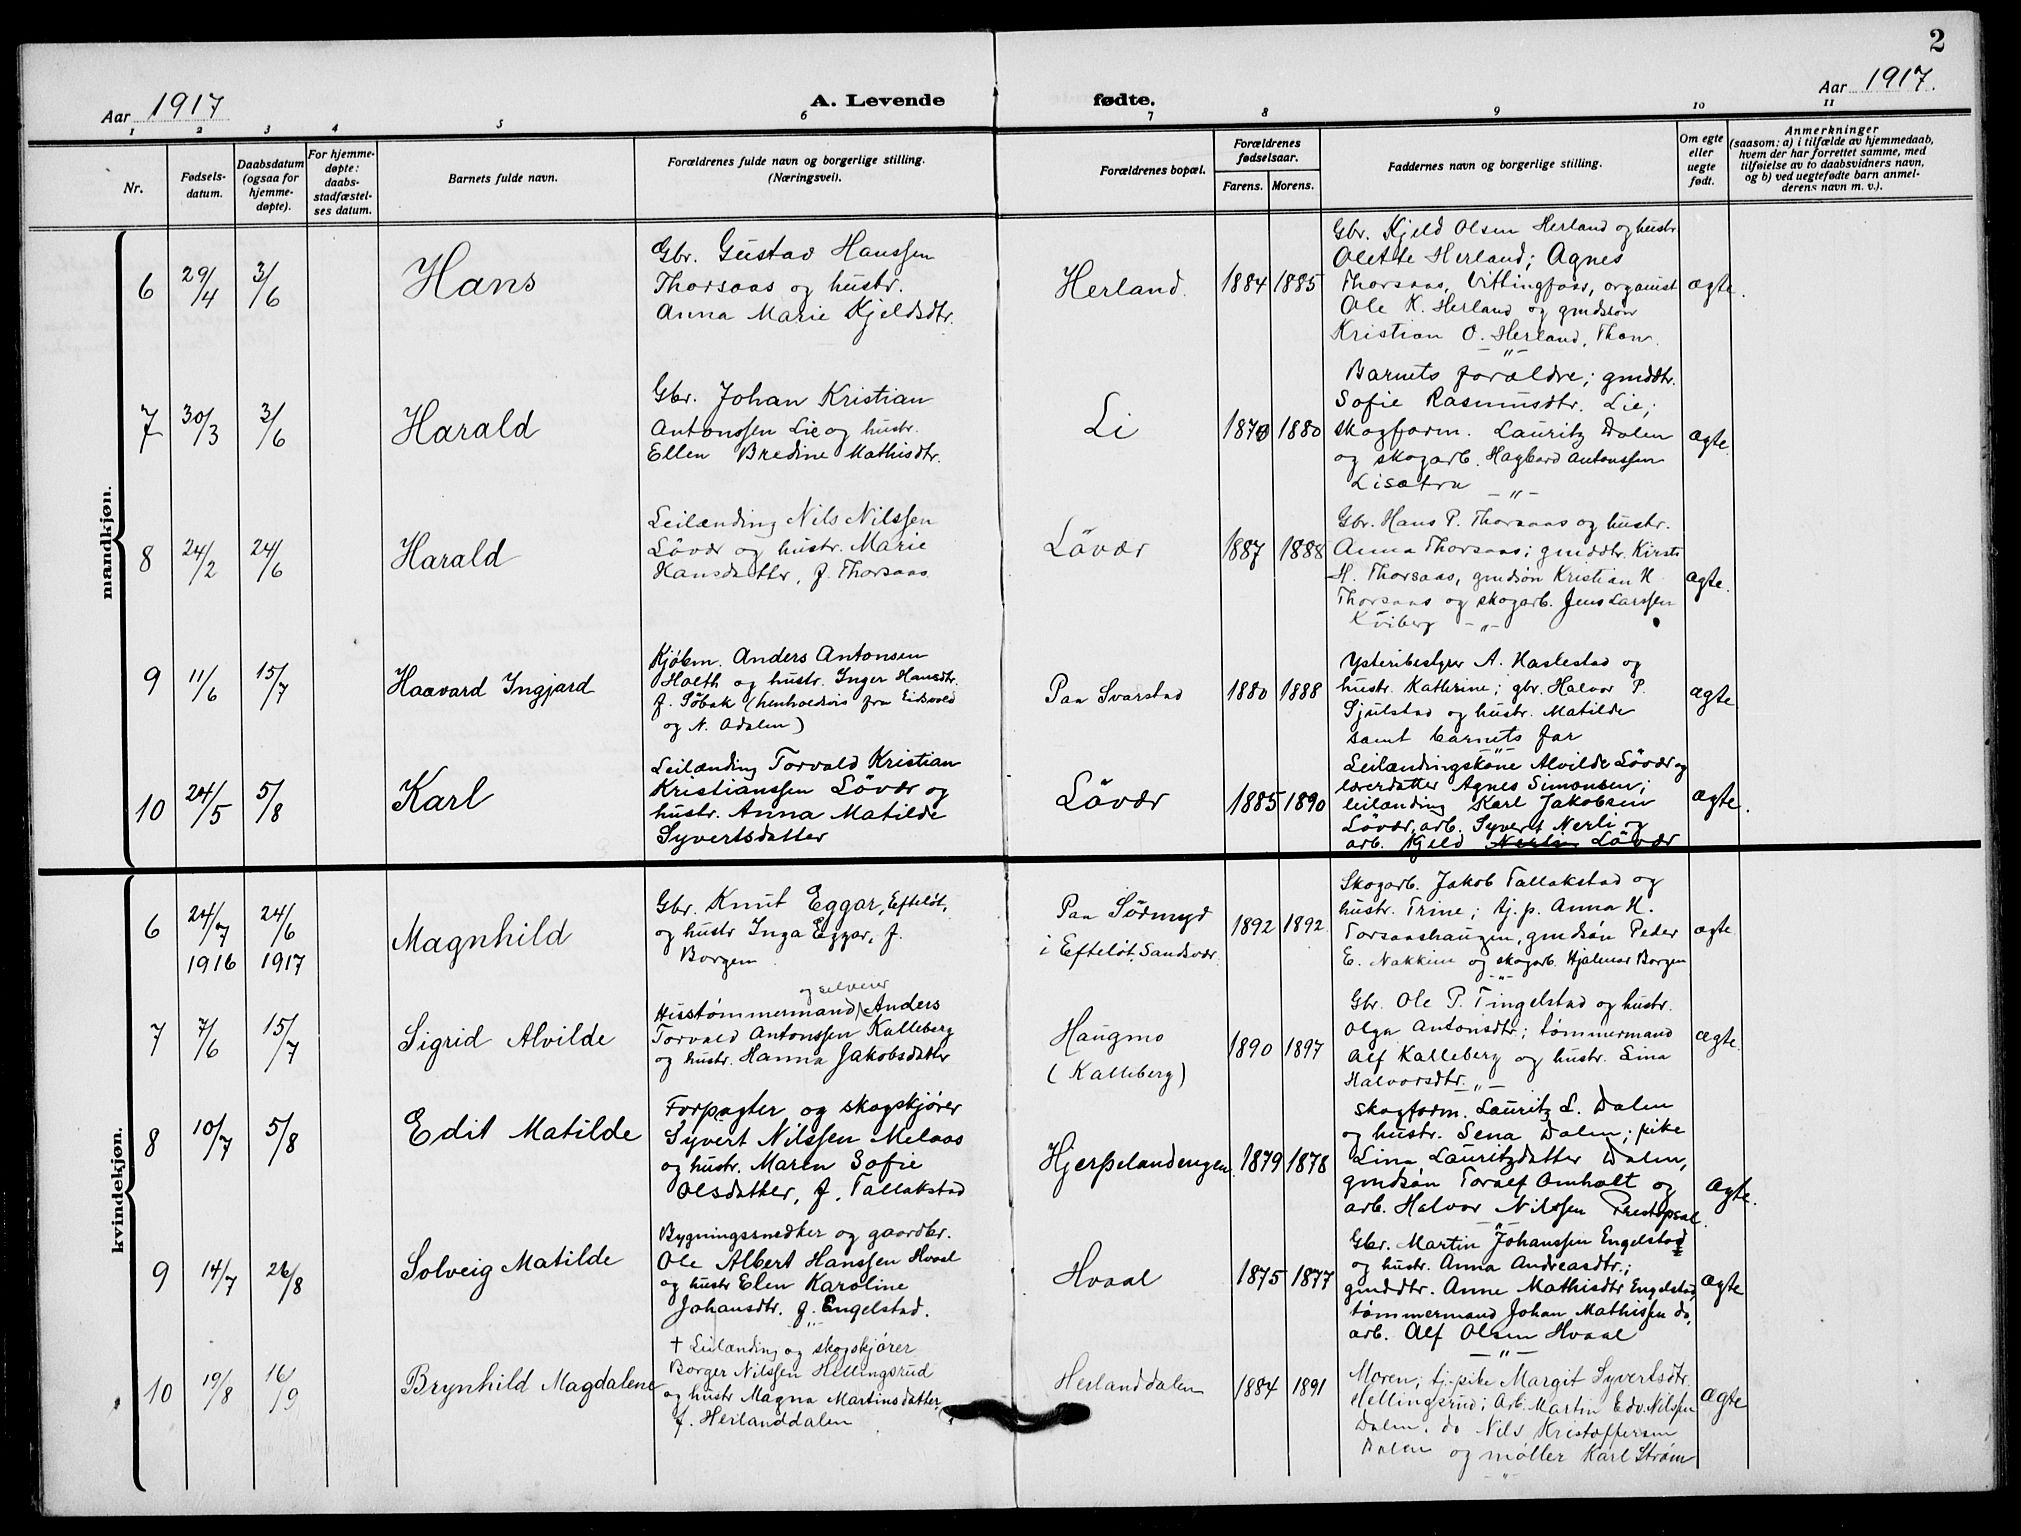 2
Aar 1917
A. Levende fødte.
Aar 1917.
1 2 3 4 5 6 7 8 9 10 11
Nr.
Fødsels-
datum.
Daabsdatum
(ogsaa for
hjemme-
døpte).
For hjemme-
døpte:
daabs-
stadfæstel-
ses datum.
Barnets fulde navn.
Forældrenes fulde navn og borgerlige stilling.
(Næringsvei).
Forældrenes bopæl.
Forældrenes
fødselsaar.
Farens. Morens.
Faddernes navn og borgerlige stilling.
Om egte
eller
uegte
født.
Anmerkninger
(saasom: a) i tilfælde av hjemmedaab,
hvem der har forrettet samme, med
tilføielse av to daabsvidners navn,
og b) ved uegtefødte barn anmel-
derens navn m. v.).
mandkjøn.
6
29/4
3/6
Hans
Gbr. Gustav Hanssen
Thorsaas og hustr.
Anna Marie Kjeldsdtr.
Herland.
1884 1885
Gbr. Kjeld Olsen Herland og hustr
Olette Herland; Agnes
Thorsaas, Vittingfoss, organist
Ole K. Herland og gmdsøn
Kristian O. Herland, Thon.
-"-
ægte.
7
30/3
3/6
Harald
Gbr. Johan Kristian
Antonssen Lie og hustr.
Ellen Bredine Mathisdtr.
Li
1878 1880
Barnets forældre; gmddtr.
Sofie Rasmusdtr. Lie;
skogform. Lauritz Dalen
og skogarb. Hagbard Antonssen
Lisætra -"-
ægte.
8
24/2
24/6
Harald
Leilænding Nils Nilssen
Lövær og hustr. Marie
Hansdatter, f. Thorsaas
Lövær
1887 1888
Gbr. Hans P. Thorsaas og hustr.
Anna Thorsaas; gmddtr. Kirsti
H. Thorsaas, gmdsøn Kristian H.
Thorsaas og skogarb. Jens Larssen
Kviberg -"-
ægte.
9
11/6
15/7
Haavard Ingjard
Kjøbm. Anders Antonsen
Holth og hustr. Inger Hansdtr.
f. Töbak (henholdsvis fra Eidsvold
og N. Adalen)
Paa Svarstad
1880 1888
Ysteribestyrer A. Haslestad og
hustr. Kathrine; gbr. Halvor P.
Sjulstad og hustr. Matilde
samt barnets far
-"-
ægte
10
24/5
5/8
Karl
Leilænding Torvald Kristian
Kristianssen Lövær og
hustr. Anna Matilde
Syvertsdatter
Lövær
1885 1890
Leilændingskone Alvilde Lövær og
lærerdatter Agnes Simonsen;
leilænding Karl Jakobsen
Lövær, arb. Syvert Nerli og
arb. Kjeld Nerli Lövær
ægte.
kvindekjøn.
6
24/7
1916
24/6
1917
Magnhild
Gbr. Knut Eggar, Efteløt,
og hustr Inga Eggar, f.
Borgen
Paa Södmyr
i Efteløt, Sandsvær.
1892 1892
Skogarb. Jakob Tallakstad og
hustr. Trine; tj. p. Anna H.
Torsaashaugen, gmdsøn Peder
E. Nakkim og skogarb. Hjalmar Borgen
-"-
ægte
7
7/6
15/7
Sigrid Alvilde
og selveier
Hustømmermand Anders
Torvald Antonssen Kalleberg
og hustr. Hanna Jakobsdatter
Haugmo
(Kalleberg)
1890 1897
Gbr. Ole P. Tingelstad og hustr.
Olga Antonsdtr; tømmermand
Alf Kalleberg og hustr. Lina
Halvorsdtr. -"-
ægte.
8
10/7
5/8
Edit Matilde
Forpagter og skogskjører
Syvert Nilssen Melaas
og hustr. Maren Sofie
Olsdatter, f. Tallakstad
Hjerpelandengen
1879 1878
Skogform. Lauritz L. Dalen
og hustr. Sena Dalen; pike
Lina Lauritzdatter Dalen,
gmdsøn Toralf Omholt og
arb. Halvor Nilssen
-"-
ægte.
9
14/7
26/8
Solveig Matilde
Bygningssnedker og gaardbr.
Ole Albert Hanssen Hvaal
og hustr Elen Karoline
Johansdtr. f. Engelstad.
Hvaal
1875 1877
Gbr. Martin Johanssen Engelstad
og hustr. Anna Andreasdtr.;
gmddtr. Anne Mathisdtr Engelstad,
tømmermand Johan Mathissen do,
arb. Alf Olsen Hvaal
-"-
ægte
10
19/8
16/9
Brynhild Magdalene
† Leilænding og skogskjører
Borger Nilssen Hellingsrud
og hustr Magna Martinsdatter,
f. Herlanddalen
Herlanddalen
1884 1891
Moren; tj.pike Margit Syvertsdtr.
Hellingsrud; Arb. Martin Edv. Nilssen
Dalen, do Nils Kristoffersen
Dalen og møller Karl Strøm
-"-
ægte